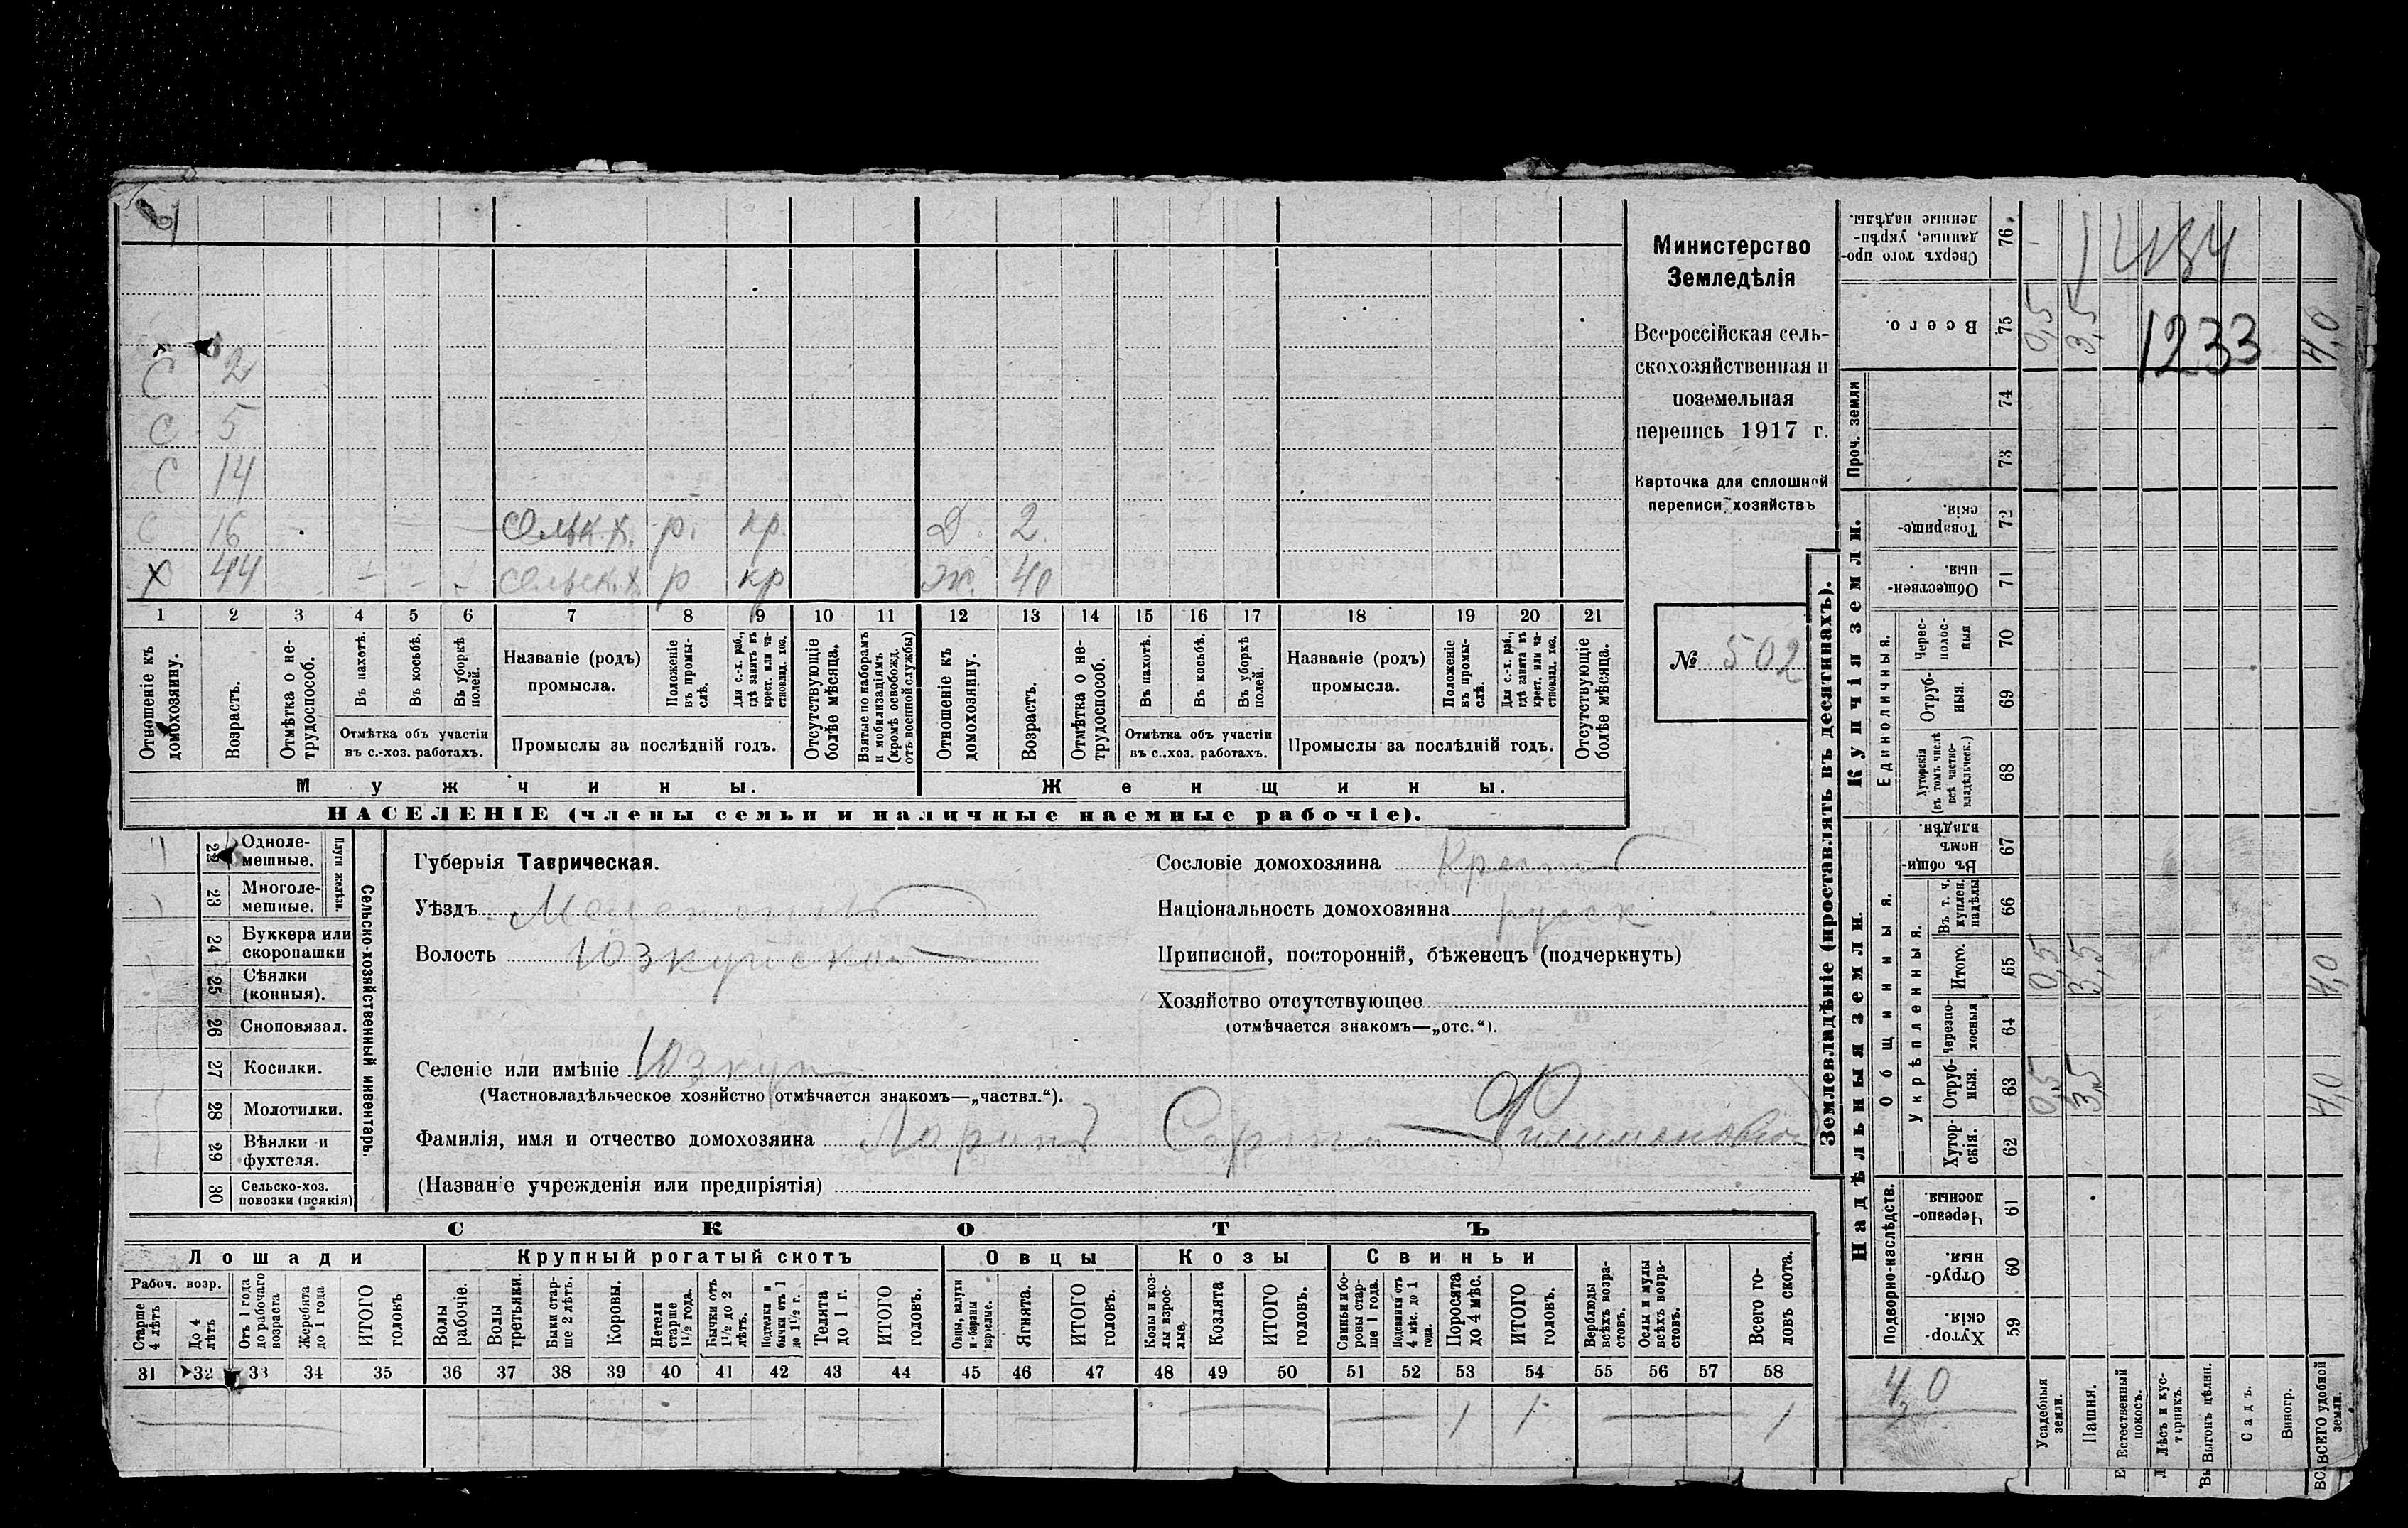 С 2
С 5
С 14
С 16 сельск.х. р. кр. Д. 2.
Х 44 – – – сельск.х. р кр Ж. 40
1 2 3 4 5 6 7 8 9 10 11 12 13 14 15 16 17 18 19 20 21
Отношеніе къ домохозяину.
Возрастъ.
Отмѣтка о не-трудоспособ.
Въ пахотѣ.
Въ косьбѣ.
Въ уборкѣ полей.
Отмѣтка объ участіи
въ с.-хоз. работахъ.
Названіе (родъ)
промысла.
Положеніе въ промы-слѣ.
Для с.-х. раб., гдѣ занятъ въ крест. или ча-стновлад. хоз.
Промыслы за послѣдній годъ.
Отсутствующіе болѣе мѣсяца.
Взятые по наборамъ и мобилизаціямъ (кромѣ освобожд. отъ военной службы)
Отношеніе къ домохозяину.
Возрастъ.
Отмѣтка о не-трудоспособ.
Въ пахотѣ.
Въ косьбѣ.
Въ уборкѣ полей.
Отмѣтка объ участіи
въ с..хоз. работахъ.
Названіе (родъ)
промысла.
Положеніе въ промы-слѣ.
Для с.-х. раб., гдѣ занята въ крест. или ча-стновлад. хоз.
Промыслы за послѣдній годъ.
Отсутствующіе болѣе мѣсяца.
Мужчины.
Женщины.
НАСЕЛЕНІЕ (члены семьи и наличные наемные рабочіе).
Министерство
Земледѣлія
Всероссійская сель-
скохозяйственная и
поземельная
перепись 1917 г.
Карточка для сплошной
переписи хозяйствъ
№ 502
22 Одноле-мешные.
23 Многоле-мешные.
Плуги желѣзн.
24 Буккера или скоропашки
25 Сѣялки (конныя).
26 Сноповязал.
27 Косилки.
28 Молотилки.
29 Вѣялки и фухтеля.
30 Сельско-хоз. повозки (всякія)
Сельско-хозяйственный инвентарь.
Губернія Таврическая.
Уѣздъ Мелитопольс
Волость Юзкуйская
Селеніе или имѣніе Юзкуи
(Частновладѣльческое хозяйство отмѣчается знакомъ—„частвл.“).
Сословіе домохозяина Крест
Національность домохозяина русск
Приписной, посторонній, бѣженецъ (подчеркнуть)
Хозяйство отсутствующее
(отмѣчается знакомъ—„отс.“).
Фамилія, имя и отчество домохозяина Ларинъ Сергѣй Филимоновъ
(Названіе учрежденія или предпріятія)
СКОТЪ
Лошади
Крупный рогатый скотъ
Овцы
Козы
Свиньи
Рабоч. возр.
Старше 4 лѣтъ
До 4 лѣтъ
Отъ 1 года до рабочаго возраста
Жеребята до 1 года
ИТОГО головъ
Волы рабочіе.
Волы третьяки.
Быки стар-ше 2 лѣтъ.
Коровы.
Нетели старше 1½ года.
Бычки отъ 1½ до 2 лѣтъ.
Подтелки и бычки отъ 1 до 1½ г.
Телята до 1 г.
ИТОГО головъ.
Овцы, валухи и бараны взрослые.
Ягнята.
ИТОГО головъ.
Козы и коз-лы взрос-лые.
Козлята
ИТОГО головъ.
Свиньи и бо-ровы стар-ше 1 года.
Подсвинки отъ 4 мѣс. до 1 года.
Поросята до 4 мѣс.
ИТОГО головъ.
Верблюды всѣхъ возра-стовъ.
Ослы и мулы всѣхъ возра-стовъ.
Всего го-ловъ скота.
31 32 33 34 35 36 37 38 39 40 41 42 43 44 45 46 47 48 49 50 51 52 53 54 55 56 57 58
1 1 1
Землевладѣніе (проставлять въ десятинахъ).
Сверхъ того про-данные, укрѣп-ленные надѣлы. 76
Всего. 75 0,5 3,5 1233 4,0
Проч. земли
74
73
Купчія земли.
Товарище-скія. 72
Обществен-ныя. 71
Единоличныя.
Черес-полос-ныя 70
Отруб-ныя. 69
Хуторскія (въ томъ числѣ всѣ частно-владѣльческ.) 68
Надѣльныя земли.
Общинныя.
Въ общин-номъ владѣн. 67
Укрѣпленныя.
Въ т. ч. куплен. надѣлы 66
Итого. 65 0,5 3,5 4,0
Черезпо-лосныя 64
Отруб-ныя. 63 0,5 3,5 4,0
Хутор-скія. 62
Подворно-наслѣдств.
Черезпо-лосныя. 61
Отруб-ныя. 60
Хутор-скія. 59
4,0
Усадебныя земли.
Пашня.
Естественный покосъ.
Лѣсъ и кус-тарникъ.
Выгонъ цѣлин.
Садъ.
Виногр.
ВСЕГО удобной земли.